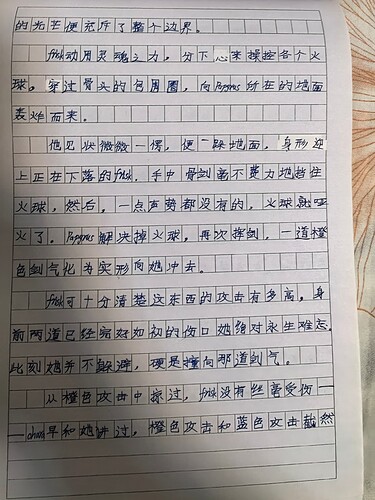 的光芒便充斥了整个边界。
frisk动用灵魂之力，分下心来操控各个火
球，穿过骨头的包围圈，向Papyrus所在的地面
轰炸而来。
他见状微微一愣，便一跺地面，身形迎
上正在下落的frisk，手中骨剑毫不费力地挡住
火球，然后，一点声势都没有的，火球就哑
火了。Papyrus解决掉火球，再次挥剑，一道橙
色剑气化为实形向她冲去。
frisk可十分清楚这东西的攻击有多高，身
前两道已经完好如初的伤口她绝对永生难忘。
此刻她并不躲避，硬是撞向那道剑气。
从橙色攻击中掠过，frisk没有丝毫受伤—
—chara早和她讲过，橙色攻击和蓝色攻击截然